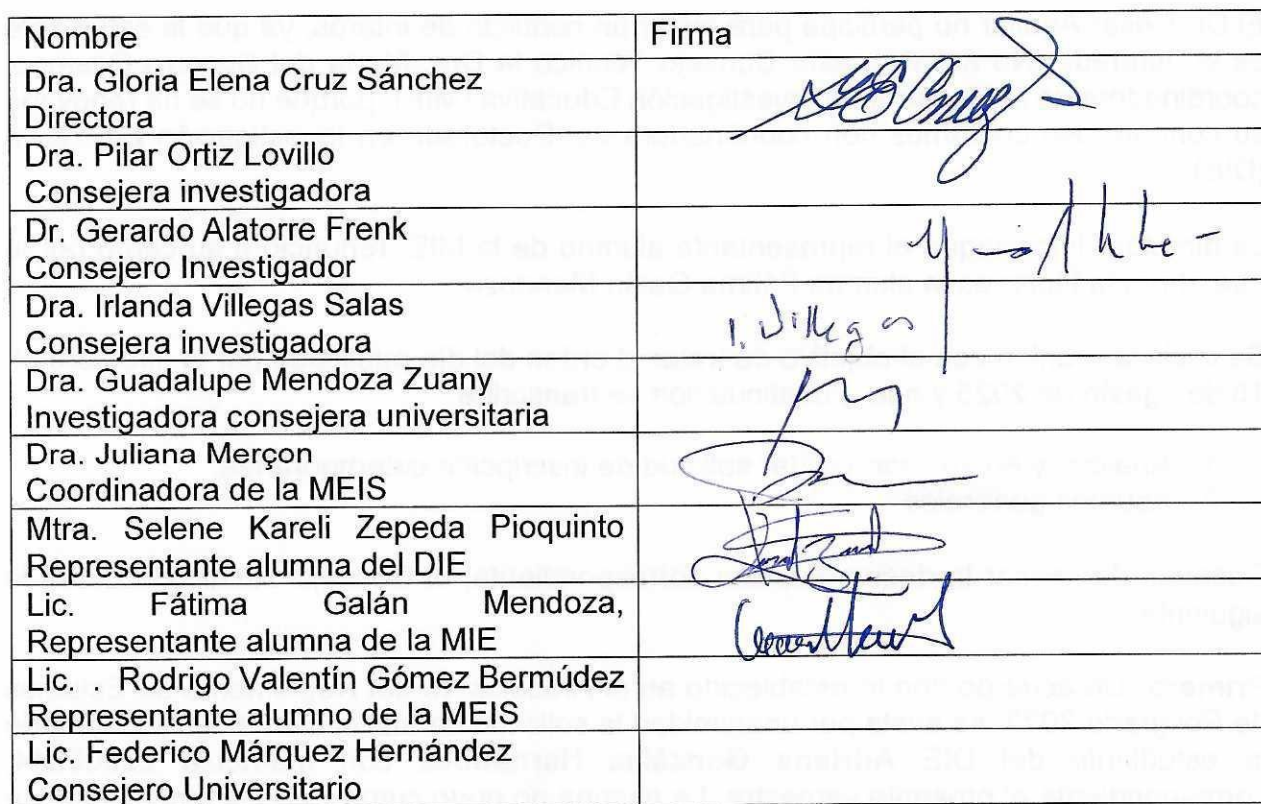 Nombre Firma
Dra. Gloria Elena Cruz Sánchez
Directora
Dra. Pilar Ortiz Lovillo
Consejera investigadora
Dr. Gerardo Alatorre Frenk
Consejero Investigador
Dra. Irlanda Villegas Salas
Consejera investigadora
I. Villegas
Dra. Guadalupe Mendoza Zuany
Investigadora consejera universitaria
Dra. Juliana Merçon
Coordinadora de la MEIS
Mtra. Selene Kareli Zepeda Pioquinto
Representante alumna del DIE
Lic. Fátima Galán Mendoza,
Representante alumna de la MIE
Lic. . Rodrigo Valentín Gómez Bermúdez
Representante alumno de la MEIS
Lic. Federico Márquez Hernández
Consejero Universitario